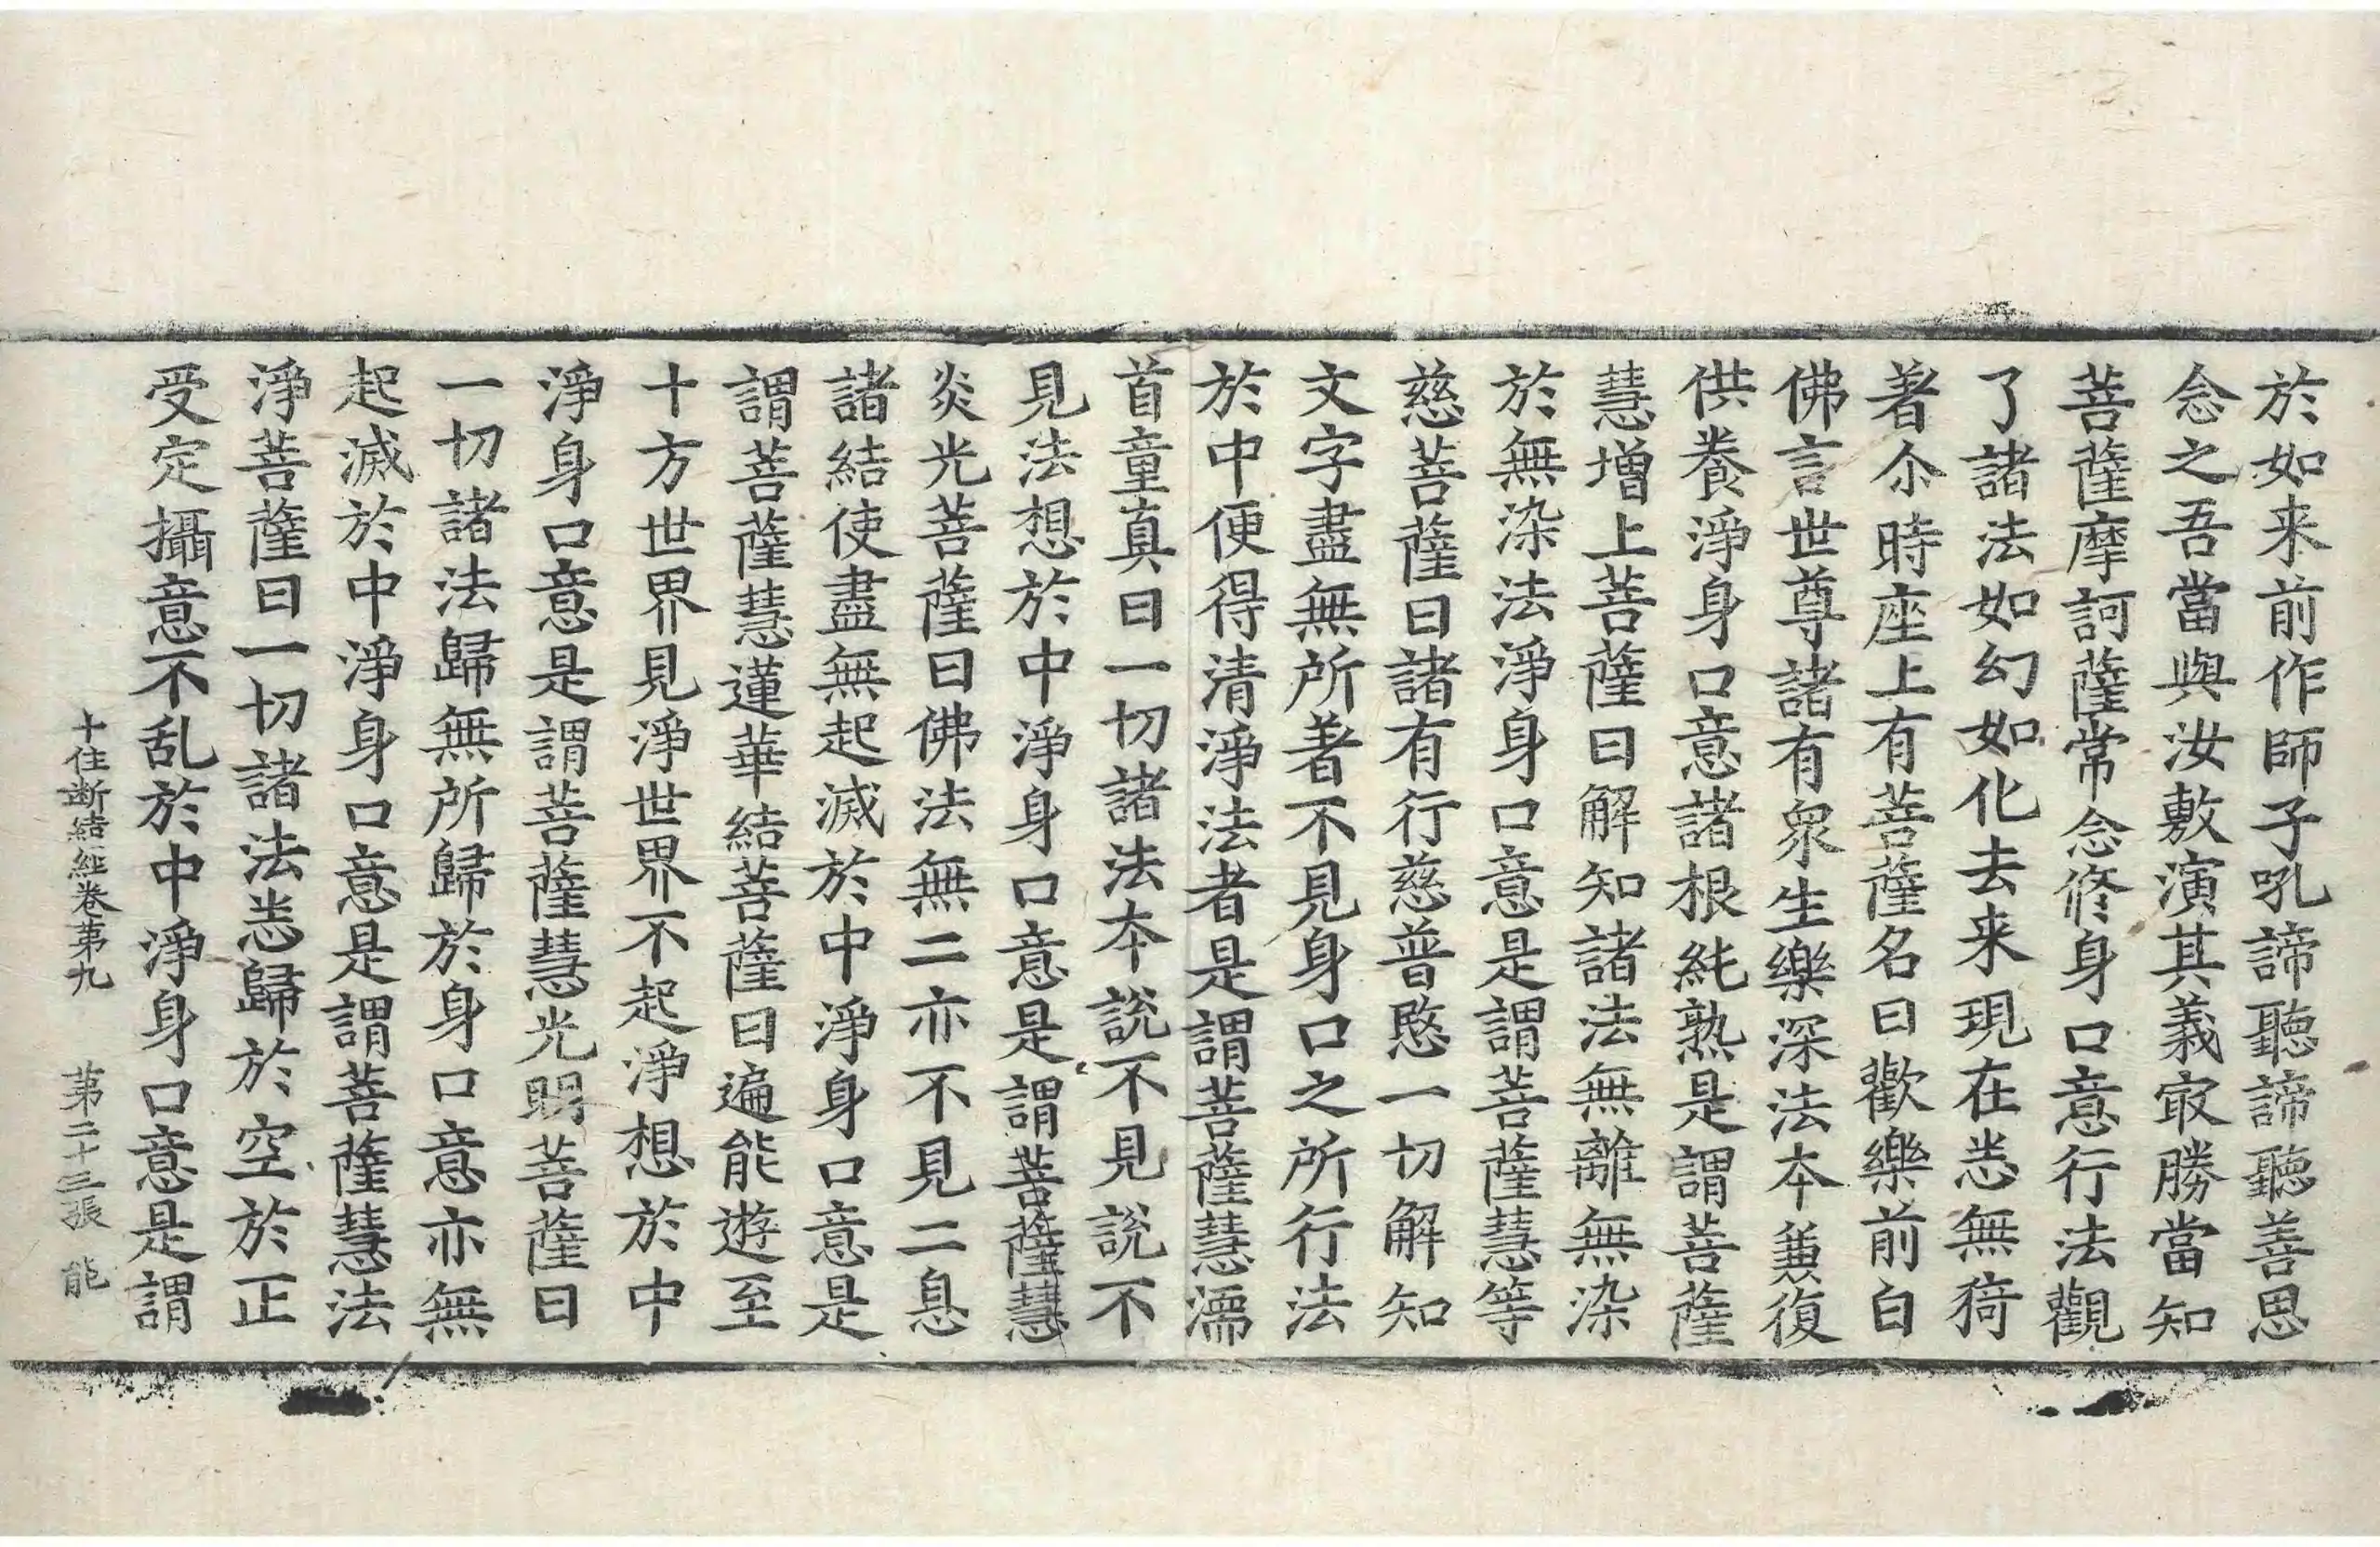 於如来前作師子吼諦聽諦聽善思
念之吾當與汝敷演其義㝡勝當知
菩薩摩訶薩常念修身口意行法觀
了諸法如幻如化去来現在悉無猗
著尒時座上有菩薩名曰歡樂前白
佛言世尊諸有衆生樂深法本兼復
供養淨身口意諸根純熟是謂菩薩
慧增上菩薩曰解知諸法無離無染
於無染法淨身口意是謂菩薩慧等
慈菩薩曰諸有行慈普愍一切解知
文字盡無所著不見身口之所行法
於中便得清淨法者是謂菩薩慧濡
首童真曰一切諸法本說不見說不
見法想於中淨身口意是謂菩薩慧
炎光菩薩曰佛法無二亦不見二息
諸結使盡無起滅於中淨身口意是
謂菩薩慧蓮華結菩薩曰遍能遊至
十方世界見淨世界不起淨想於中
淨身口意是謂菩薩慧光明菩薩曰
一切諸法歸無所歸於身口意亦無
起滅於中淨身口意是謂菩薩慧法
淨菩薩曰一切諸法悉歸於空於正
受定攝意不乱於中淨身口意是謂
十住断結經卷第九 第二十三張 能